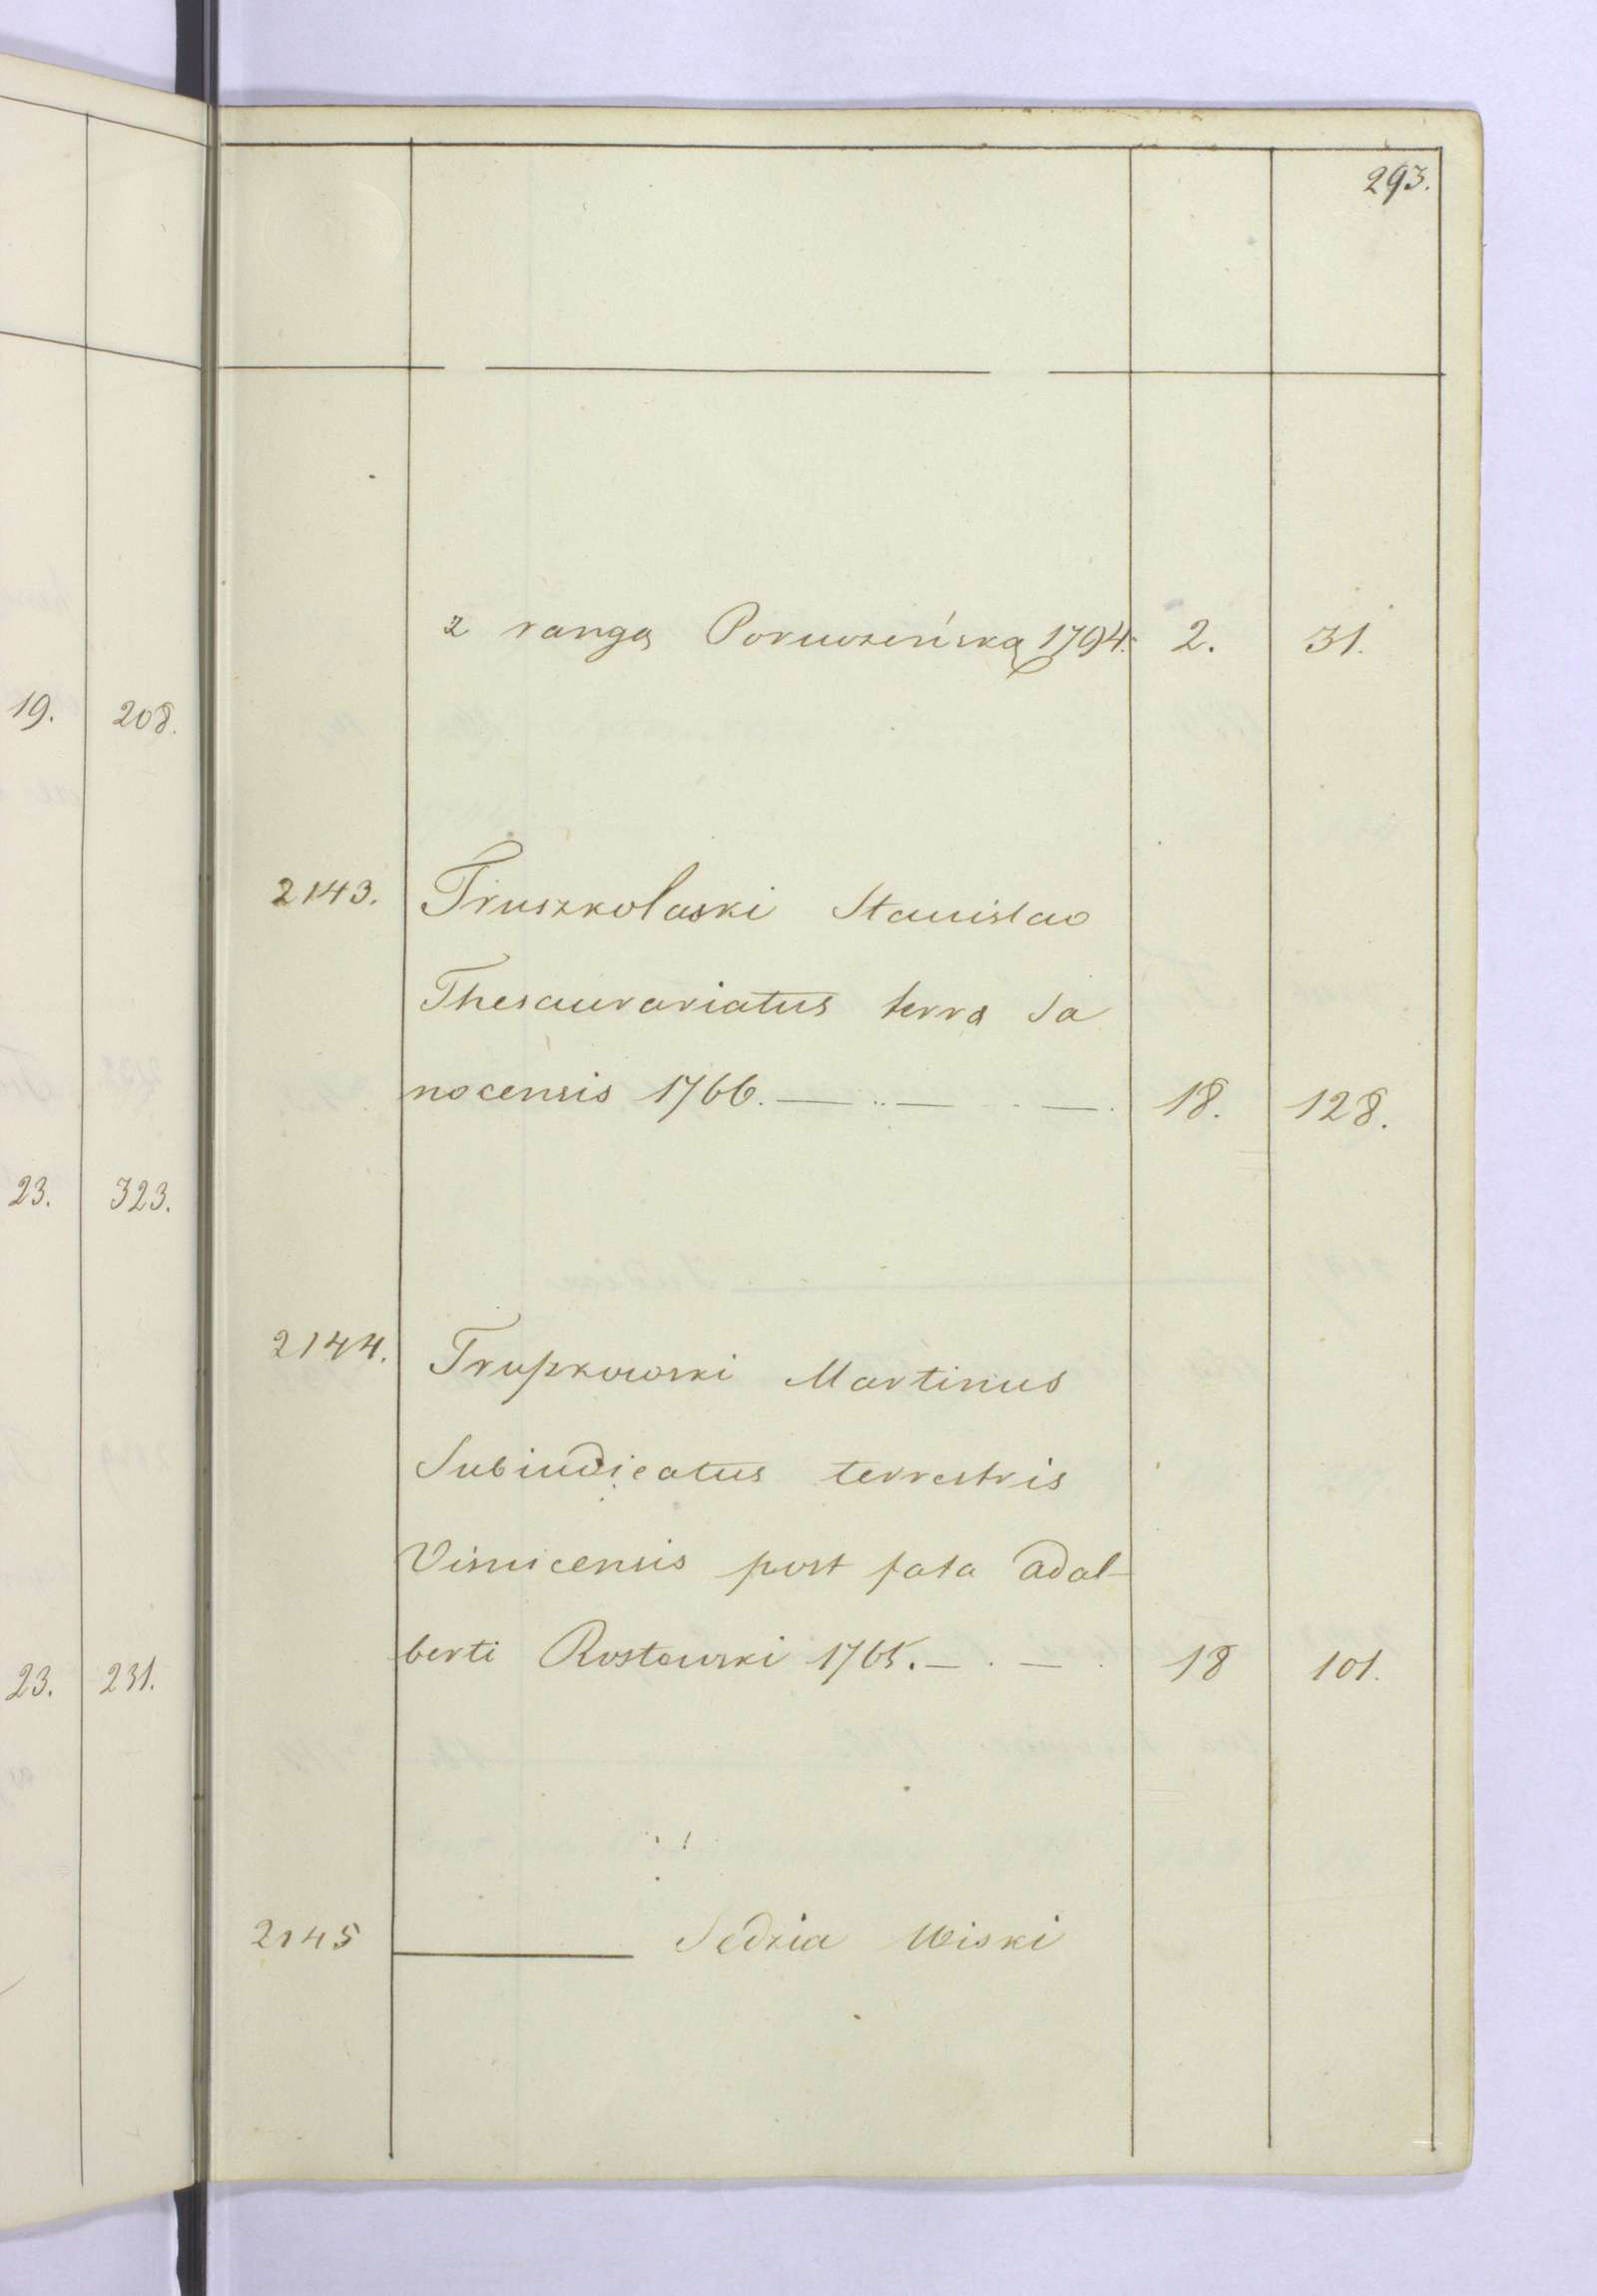 293.
z rangą Poruczeńską 1794. 2. 31.
19. 208.
2143. Truszkolaski Stanislao
Thesaurariatus terra Sa
nocensis 1766. — .. — . — . 18. 128.
23. 323.
2144. Trupkowski Martinus
Subiudicatus terrestris
Visnicensis post fata Adal-
berti Rostowski 1765. — . — . 18 101.
23. 231.
2145 ——— Sedzia Wiski